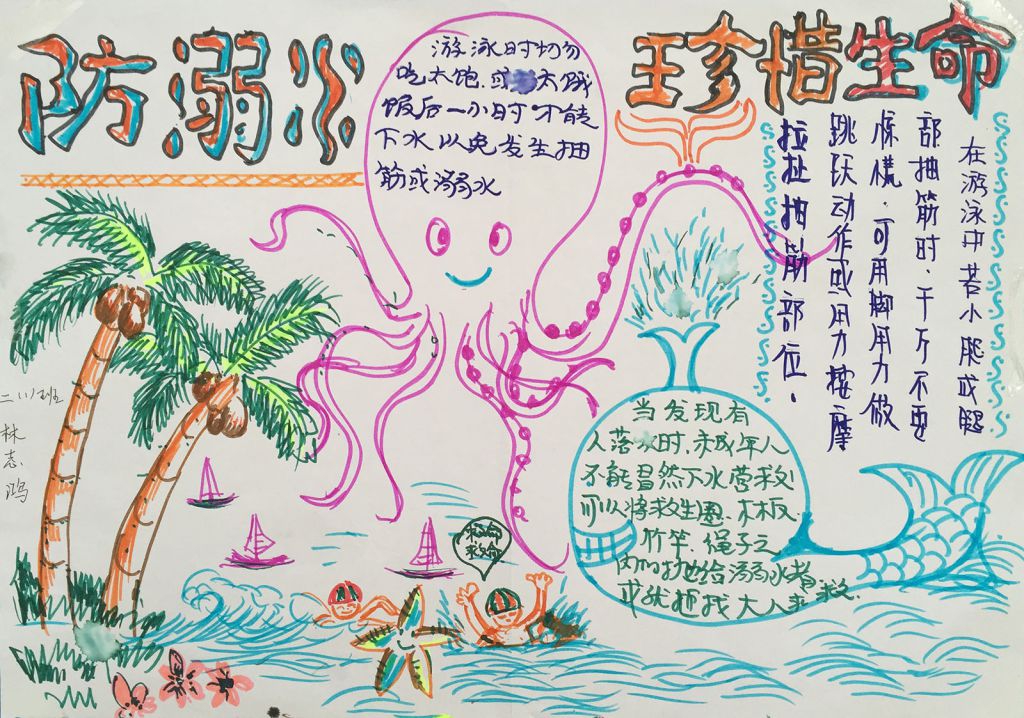 防溺水
珍惜生命
游泳时切勿
吃太饱.或太饿
饭后一小时不能
下水以免发生抽
筋或溺水
在游泳中若小腿或腿
部抽筋时.千万不要
惊慌.可用脚用力做
跳跃动作或用力按摩
拉扯抽筋部位.
当发现有
人落水时.未成年人
不能冒然下水营救
可以将救生圈.木板
竹竿.绳子之
内的抛给溺水者
或就近找大人来救.
救命
救命
二(1)班
林志鸿